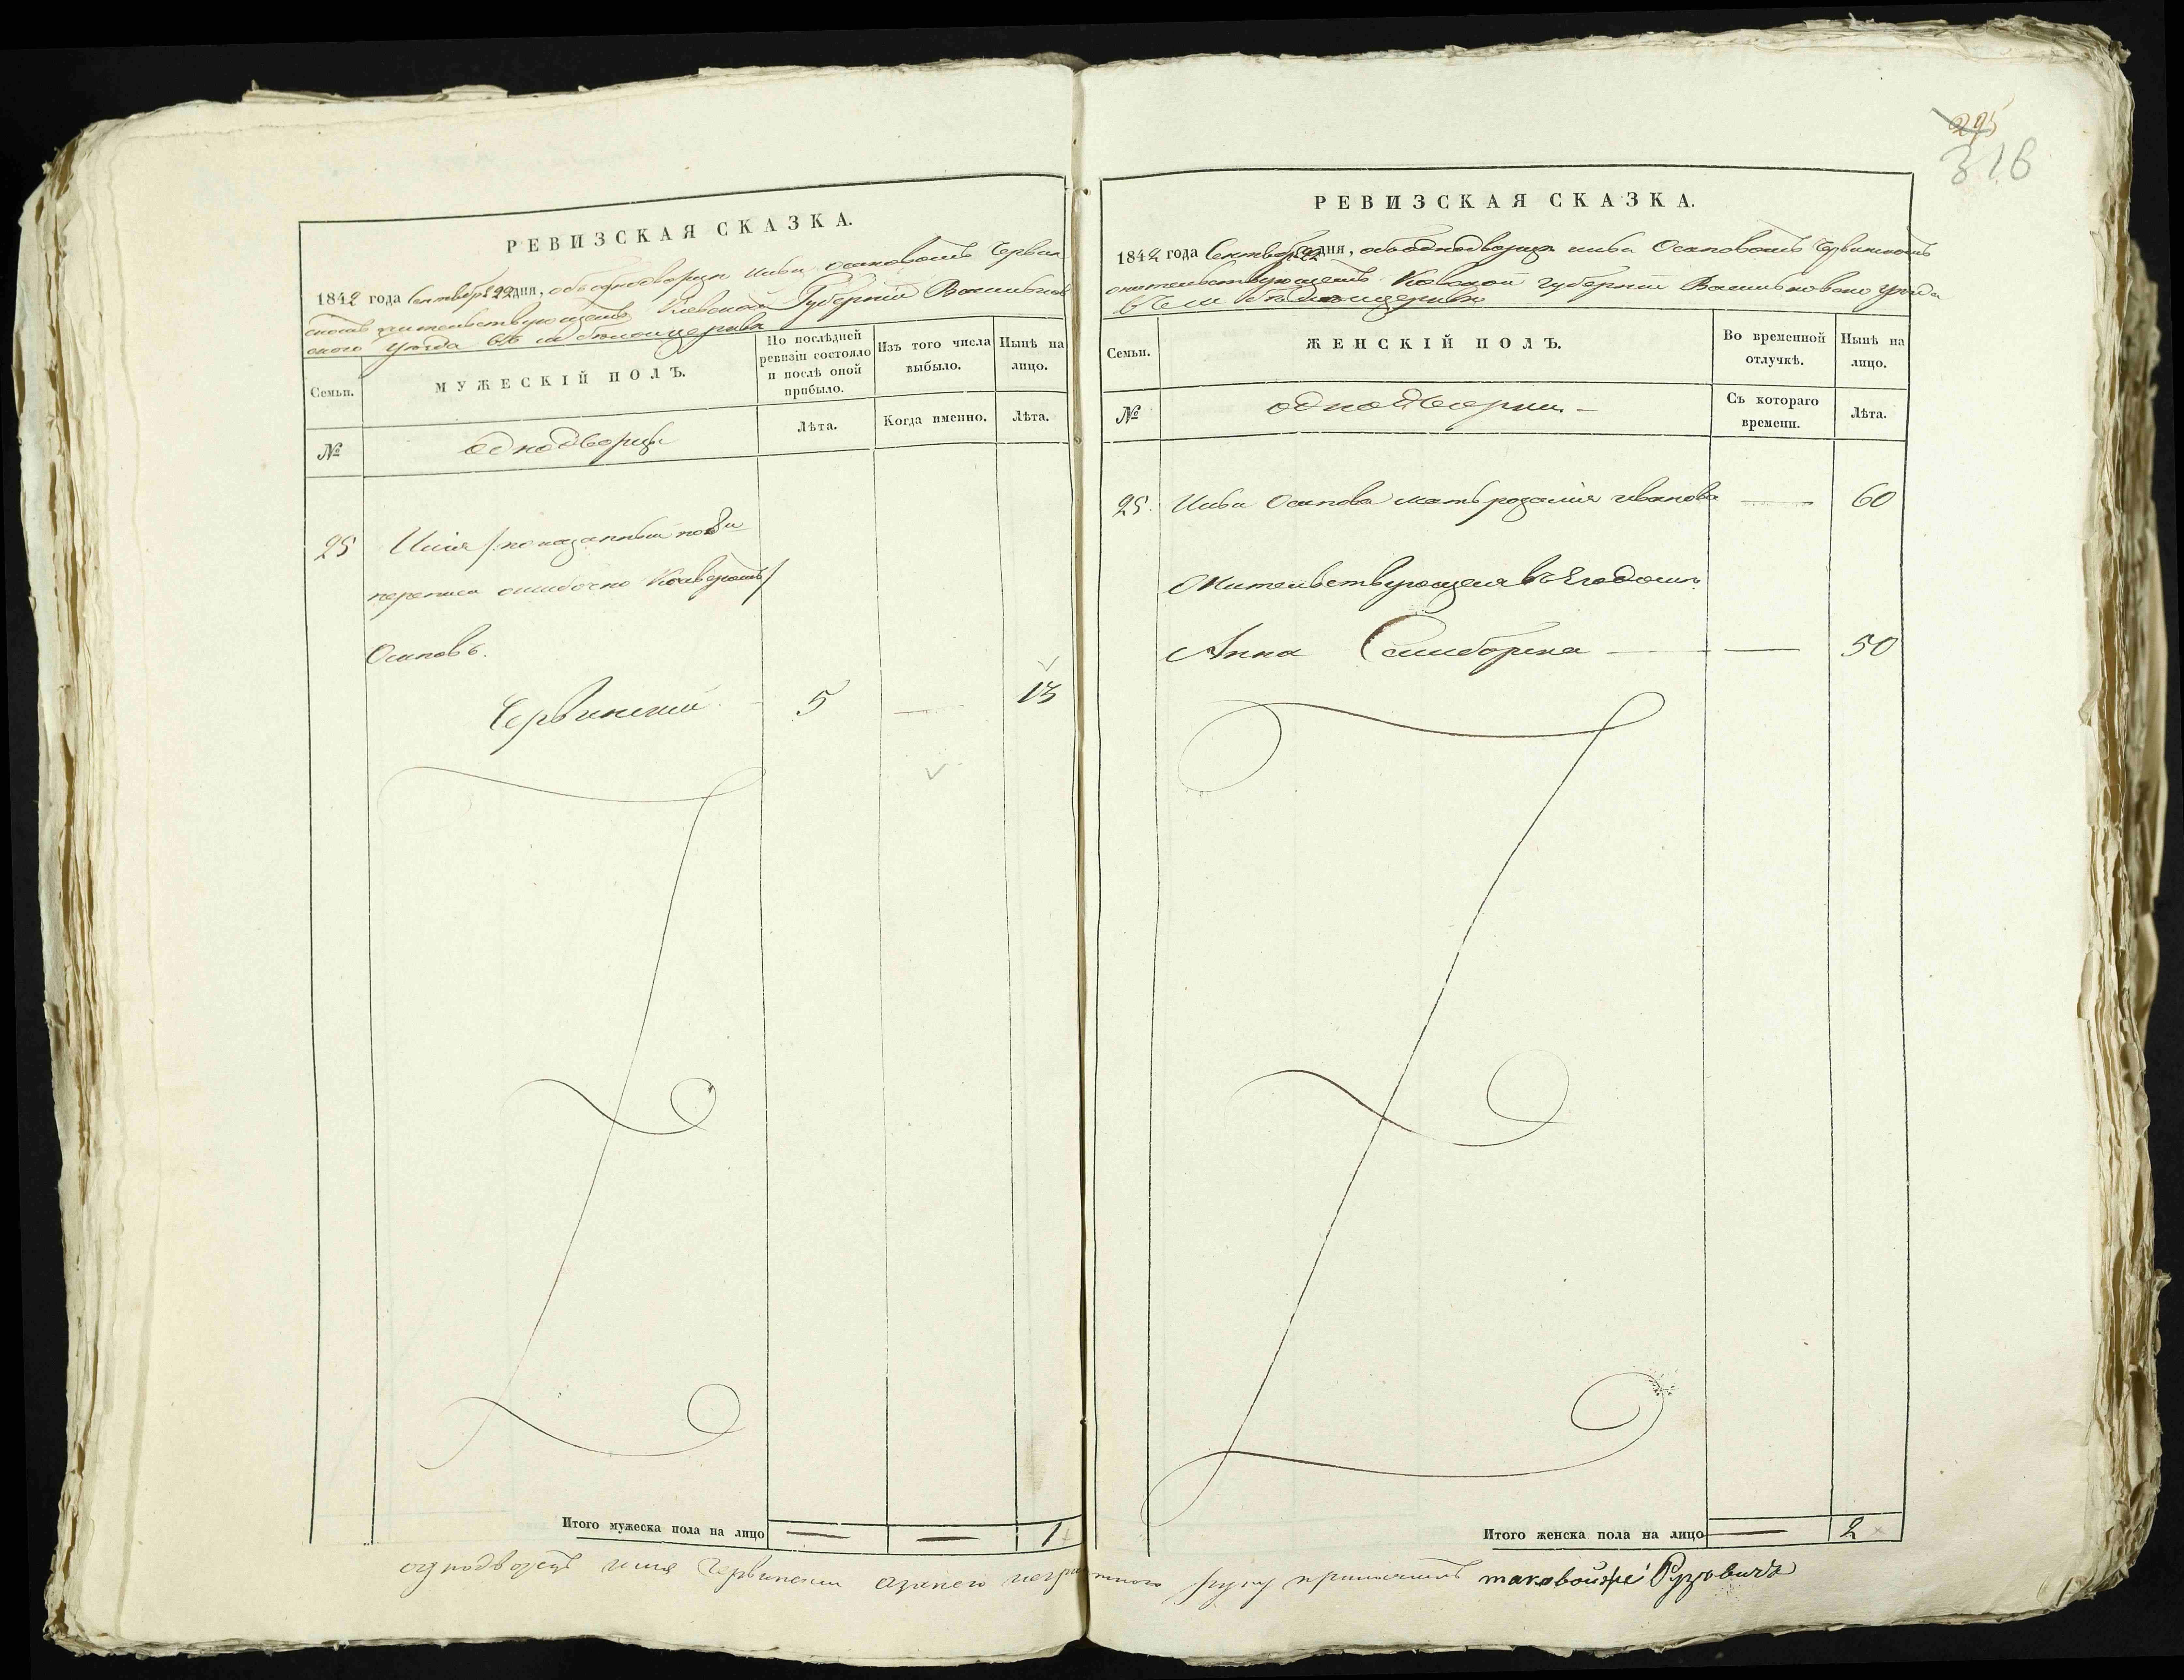 РЕВИЗСКАЯ СКАЗКА.
1842 года Сентября 22 дня, объ однодворцѣ Осиповомъ Червин
скомъ жительствующемъ Кіевской Губерніи Васильков
ского Уѣзда въ
Семьи.
МУЖЕСКІЙ ПОЛЪ.
По послѣдней ревизіи состояло и послѣ оной прибыло.
Изъ того числа выбыло.
Нынѣ на лицо.
№
однодворцы
Лѣта.
Когда именно.
Лѣта.
25 показанный по 8й
переписи ошибочно
Осиповъ.
Червинский 5 — 13
Итого мужеска пола на лицо — — 1
225
316
РЕВИЗСКАЯ СКАЗКА.
1842 года Сентября 22 дня, объ однодворцѣ Осиповомъ Червинскомъ
жительствующемъ Кіевской губерніи Васильковского уѣзда
Семьи.
ЖЕНСКІЙ ПОЛЪ.
Во временной отлучкѣ.
Нынѣ на лицо.
№
однодворки
Съ котораго времени.
Лѣта.
25. Осипова мать розалия иванова — 60
Жительствующая въ
Анна — 50
Итого женска пола на лицо — 2
однодворецъ Червински азанего неграмотного руку приложилъ таковойже